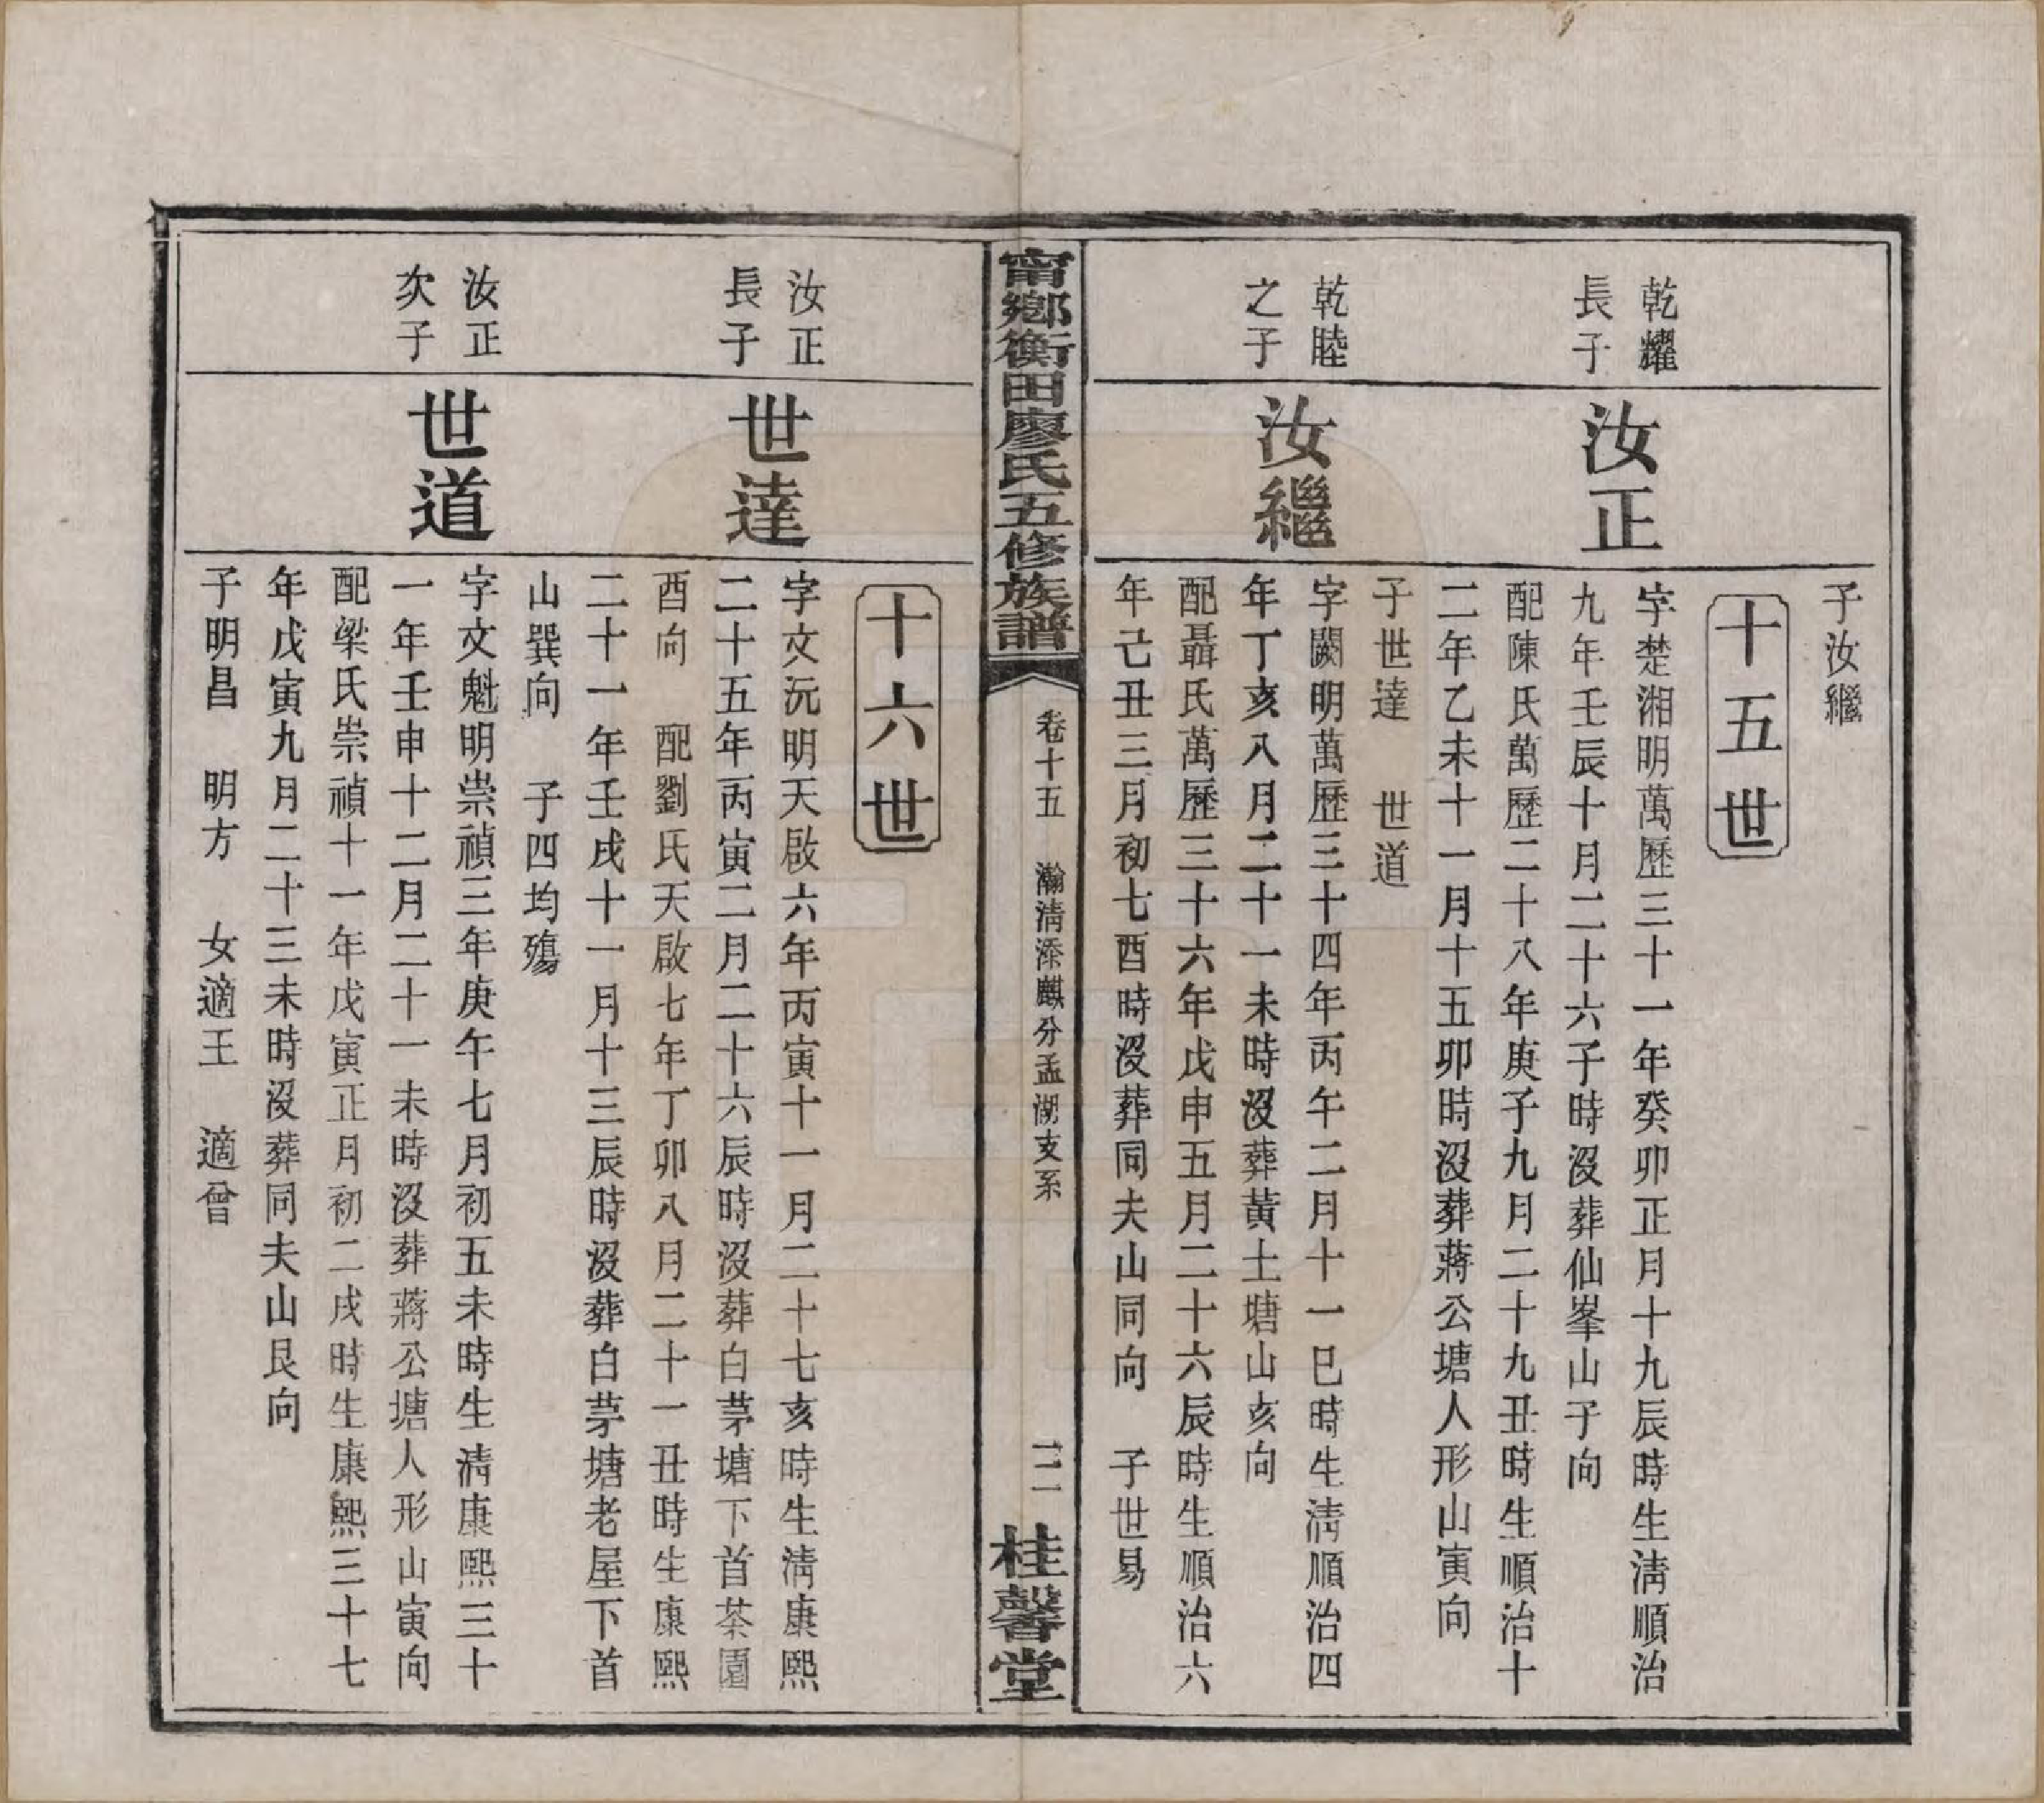 子汝繼
十五世
乾耀
長子
汝正
字楚湘明萬歷三十一年癸卯正月十九辰時生淸順治
九年壬辰十月二十六子時沒葬仙峯山子向
配陳氏萬歷二十八年庚子九月二十九丑時生順治十
二年乙未十一月十五卯時沒葬蔣公塘人形山寅向
子世達　世道
乾睦
之子
汝繼
字闕明萬歷三十四年丙午二月十一巳時生淸順治四
年丁亥八月二十一未時沒葬黃土塘山亥向
配聶氏萬歷三十六年戊申五月二十六辰時生順治六
年己丑三月初七酉時沒葬同夫山同向　子世易
甯鄉衡田廖氏五修族譜
卷十五　瀚淸添麒分孟湖支系
三
桂馨堂
十六世
汝正
長子
世達
字文沅明天啟六年丙寅十一月二十七亥時生淸康熙
二十五年丙寅二月二十六辰時沒葬白茅塘下首茶園
酉向　配劉氏天啟七年丁卯八月二十一丑時生康熙
二十一年壬戌十一月十三辰時沒葬白茅塘老屋下首
山巽向　子四均殤
汝正
次子
世道
字文魁明崇禎三年庚午七月初五未時生淸康熙三十
一年壬申十二月二十一未時沒葬蔣公塘人形山寅向
配梁氏崇禎十一年戊寅正月初二戌時生康熙三十七
年戊寅九月二十三未時沒葬同夫山艮向
子明昌　明方　女適王　適曾